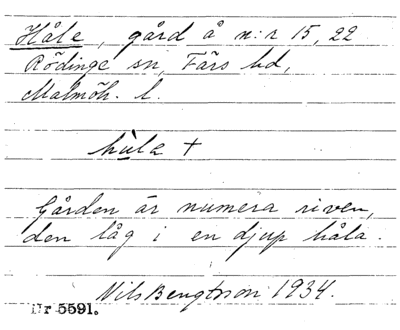 Håle, gård å n:r 15, 22
Rödinge sn, Färs hd,
Malmöh. l.
hula +
Gården är numera riven,
den låg i en djup håla.
Nils Bengtsson 1934.
Nr 5591.